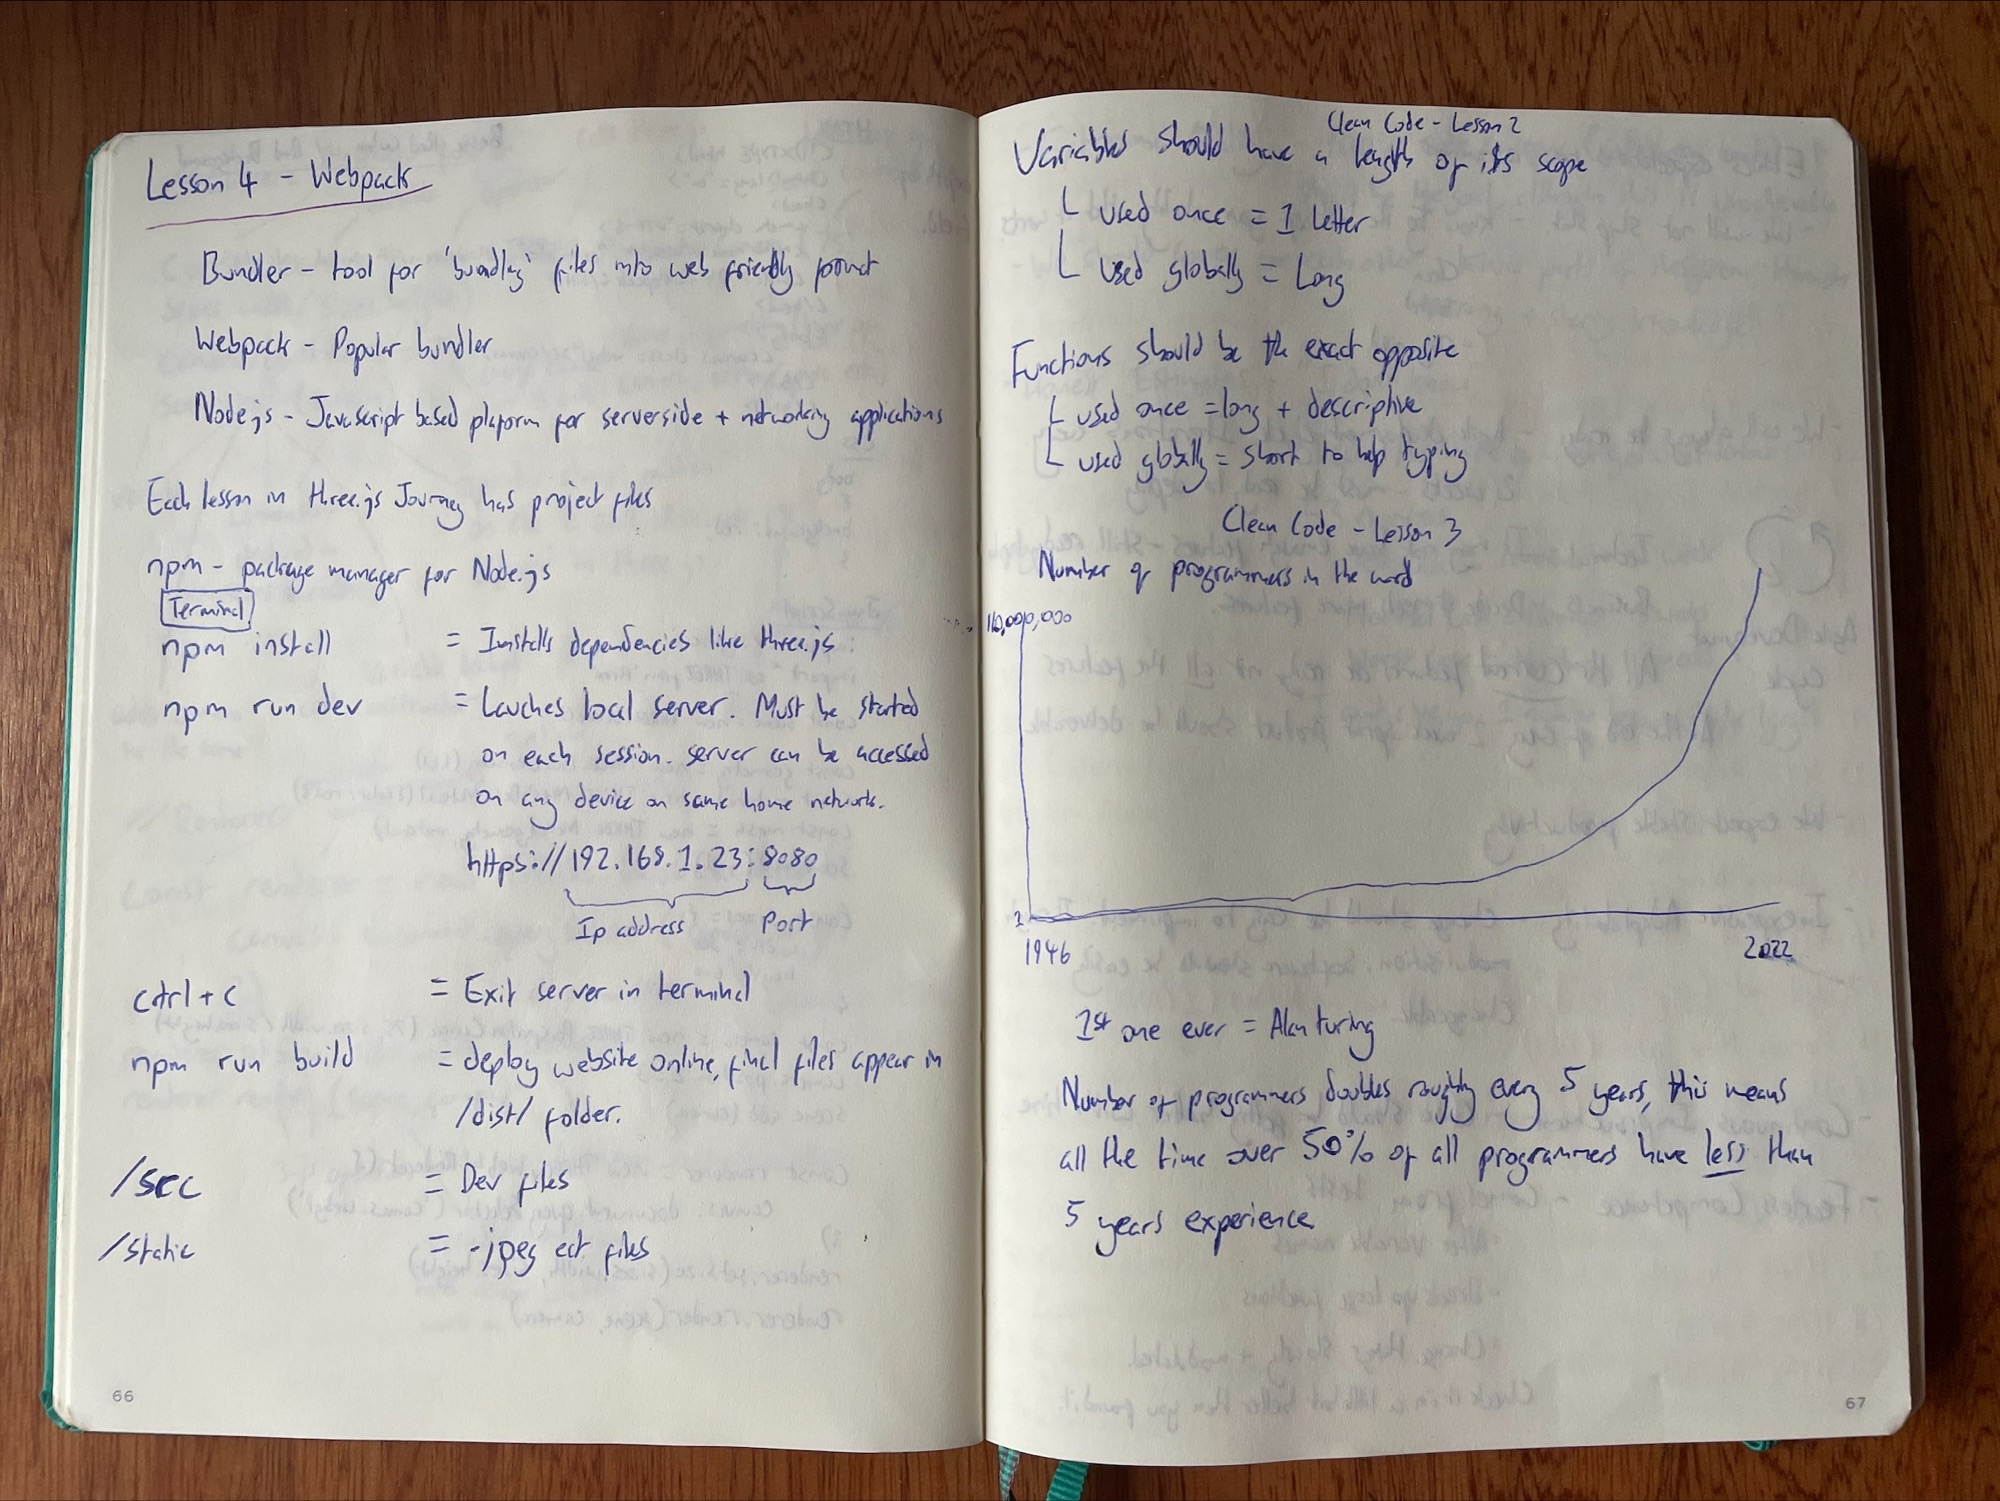 Lesson 4 - Webpack
Bundler - tool for 'bundling' files into web friendly format
Webpack - Popular bundler
Node.js - JavaScript based platform for serverside + networking applications
Each lesson in three.js Journey has project files
npm - package manager for Node.js
Terminal
npm install = Installs dependencies like three.js
npm run dev = Lauches local server. Must be started
on each session. server can be accessed
on any device on same home network.
https://192.168.1.23:8080
Ip address Port
ctrl+c = Exit server in terminal
npm run build = deploy website online, final files appear in
/dist/ folder.
/src = Dev files
/static = .jpeg ect files
66
Clean Code - Lesson 2
Variables should have a length of its scope
used once = 1 Letter
used globally = Long
Functions should be the exact opposite
used once = long + descriptive
used globally = short to help typing
Clean Code - Lesson 3
Number of programmers in the word
000,000
1
1946 2022
1st one ever = Alan turing
Number of programmers doubles roughly every 5 years, this means
all the time over 50% of all programmers have less than
5 years experience
67